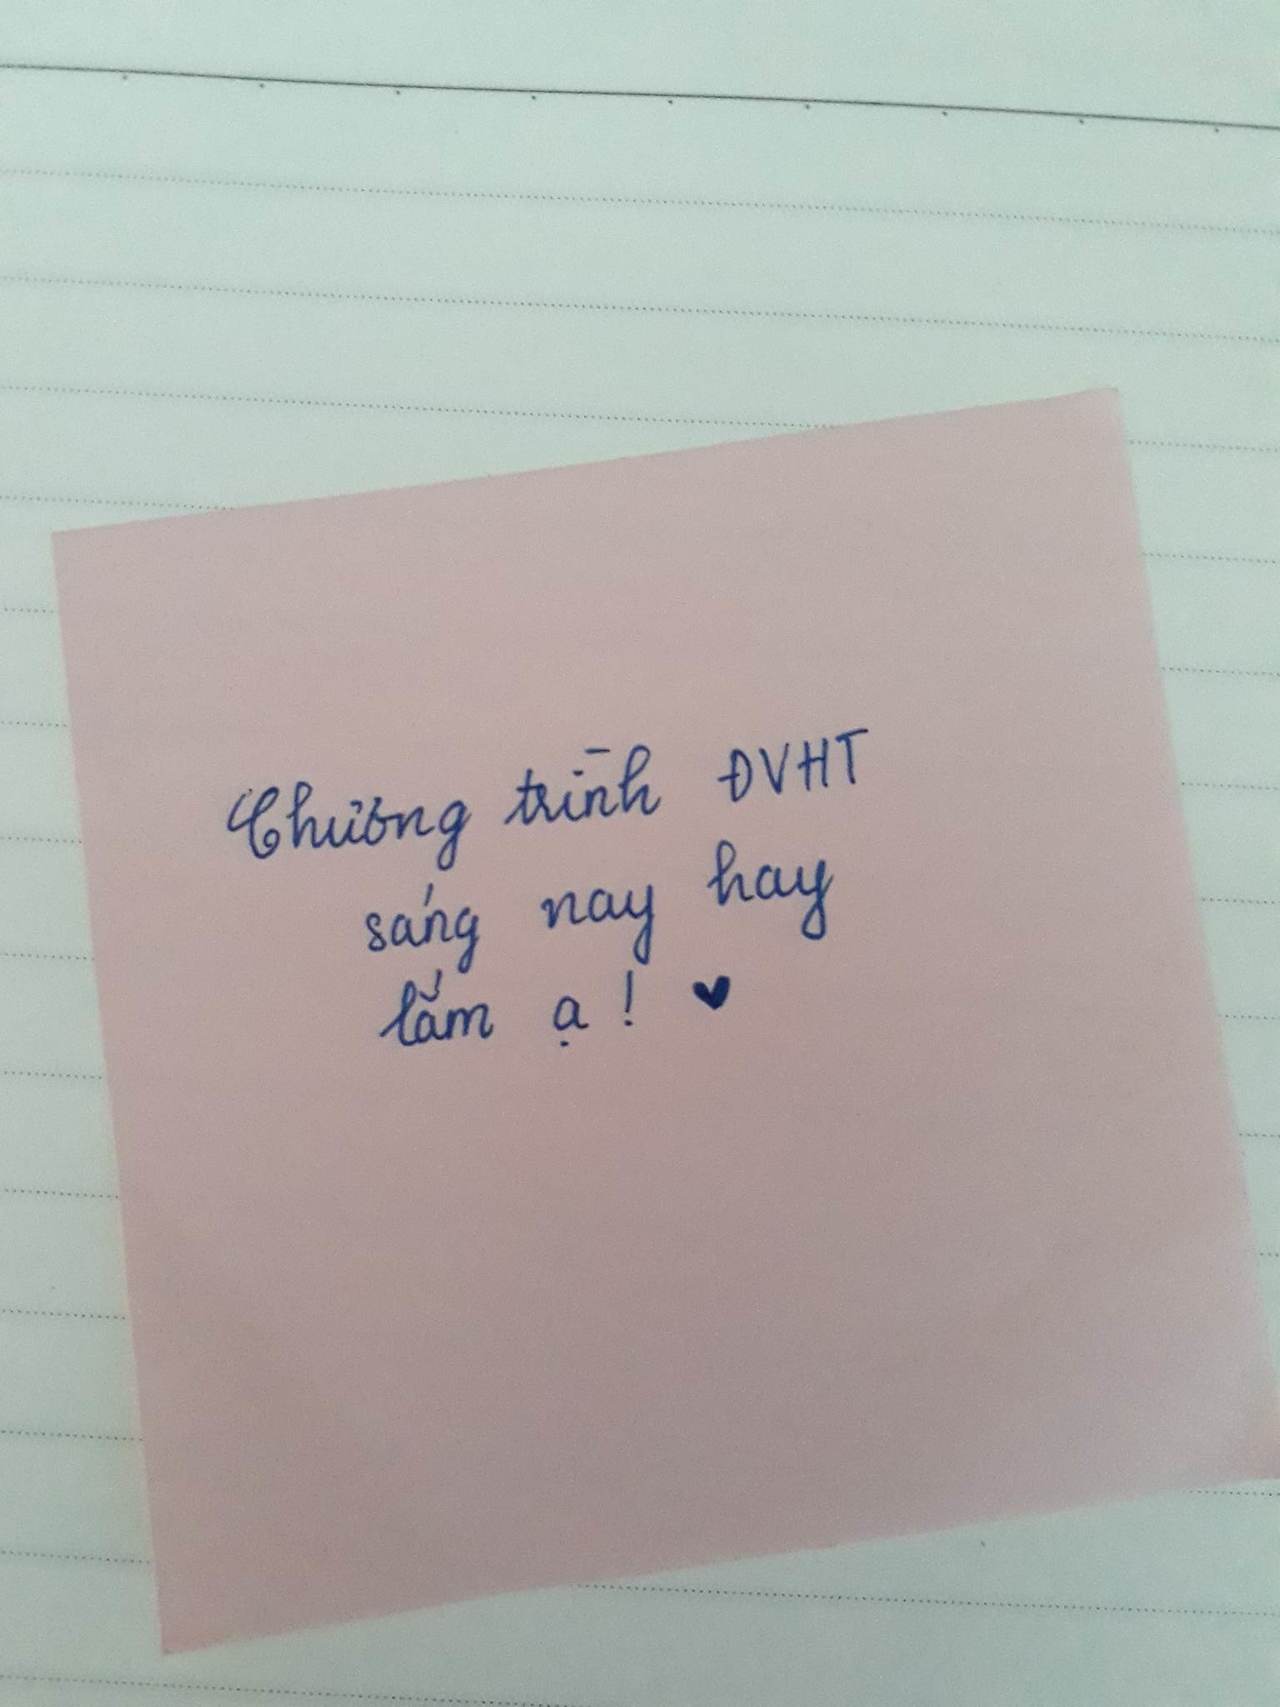 Chương trình ĐVHT
sáng nay hay
lắm ạ! ♥